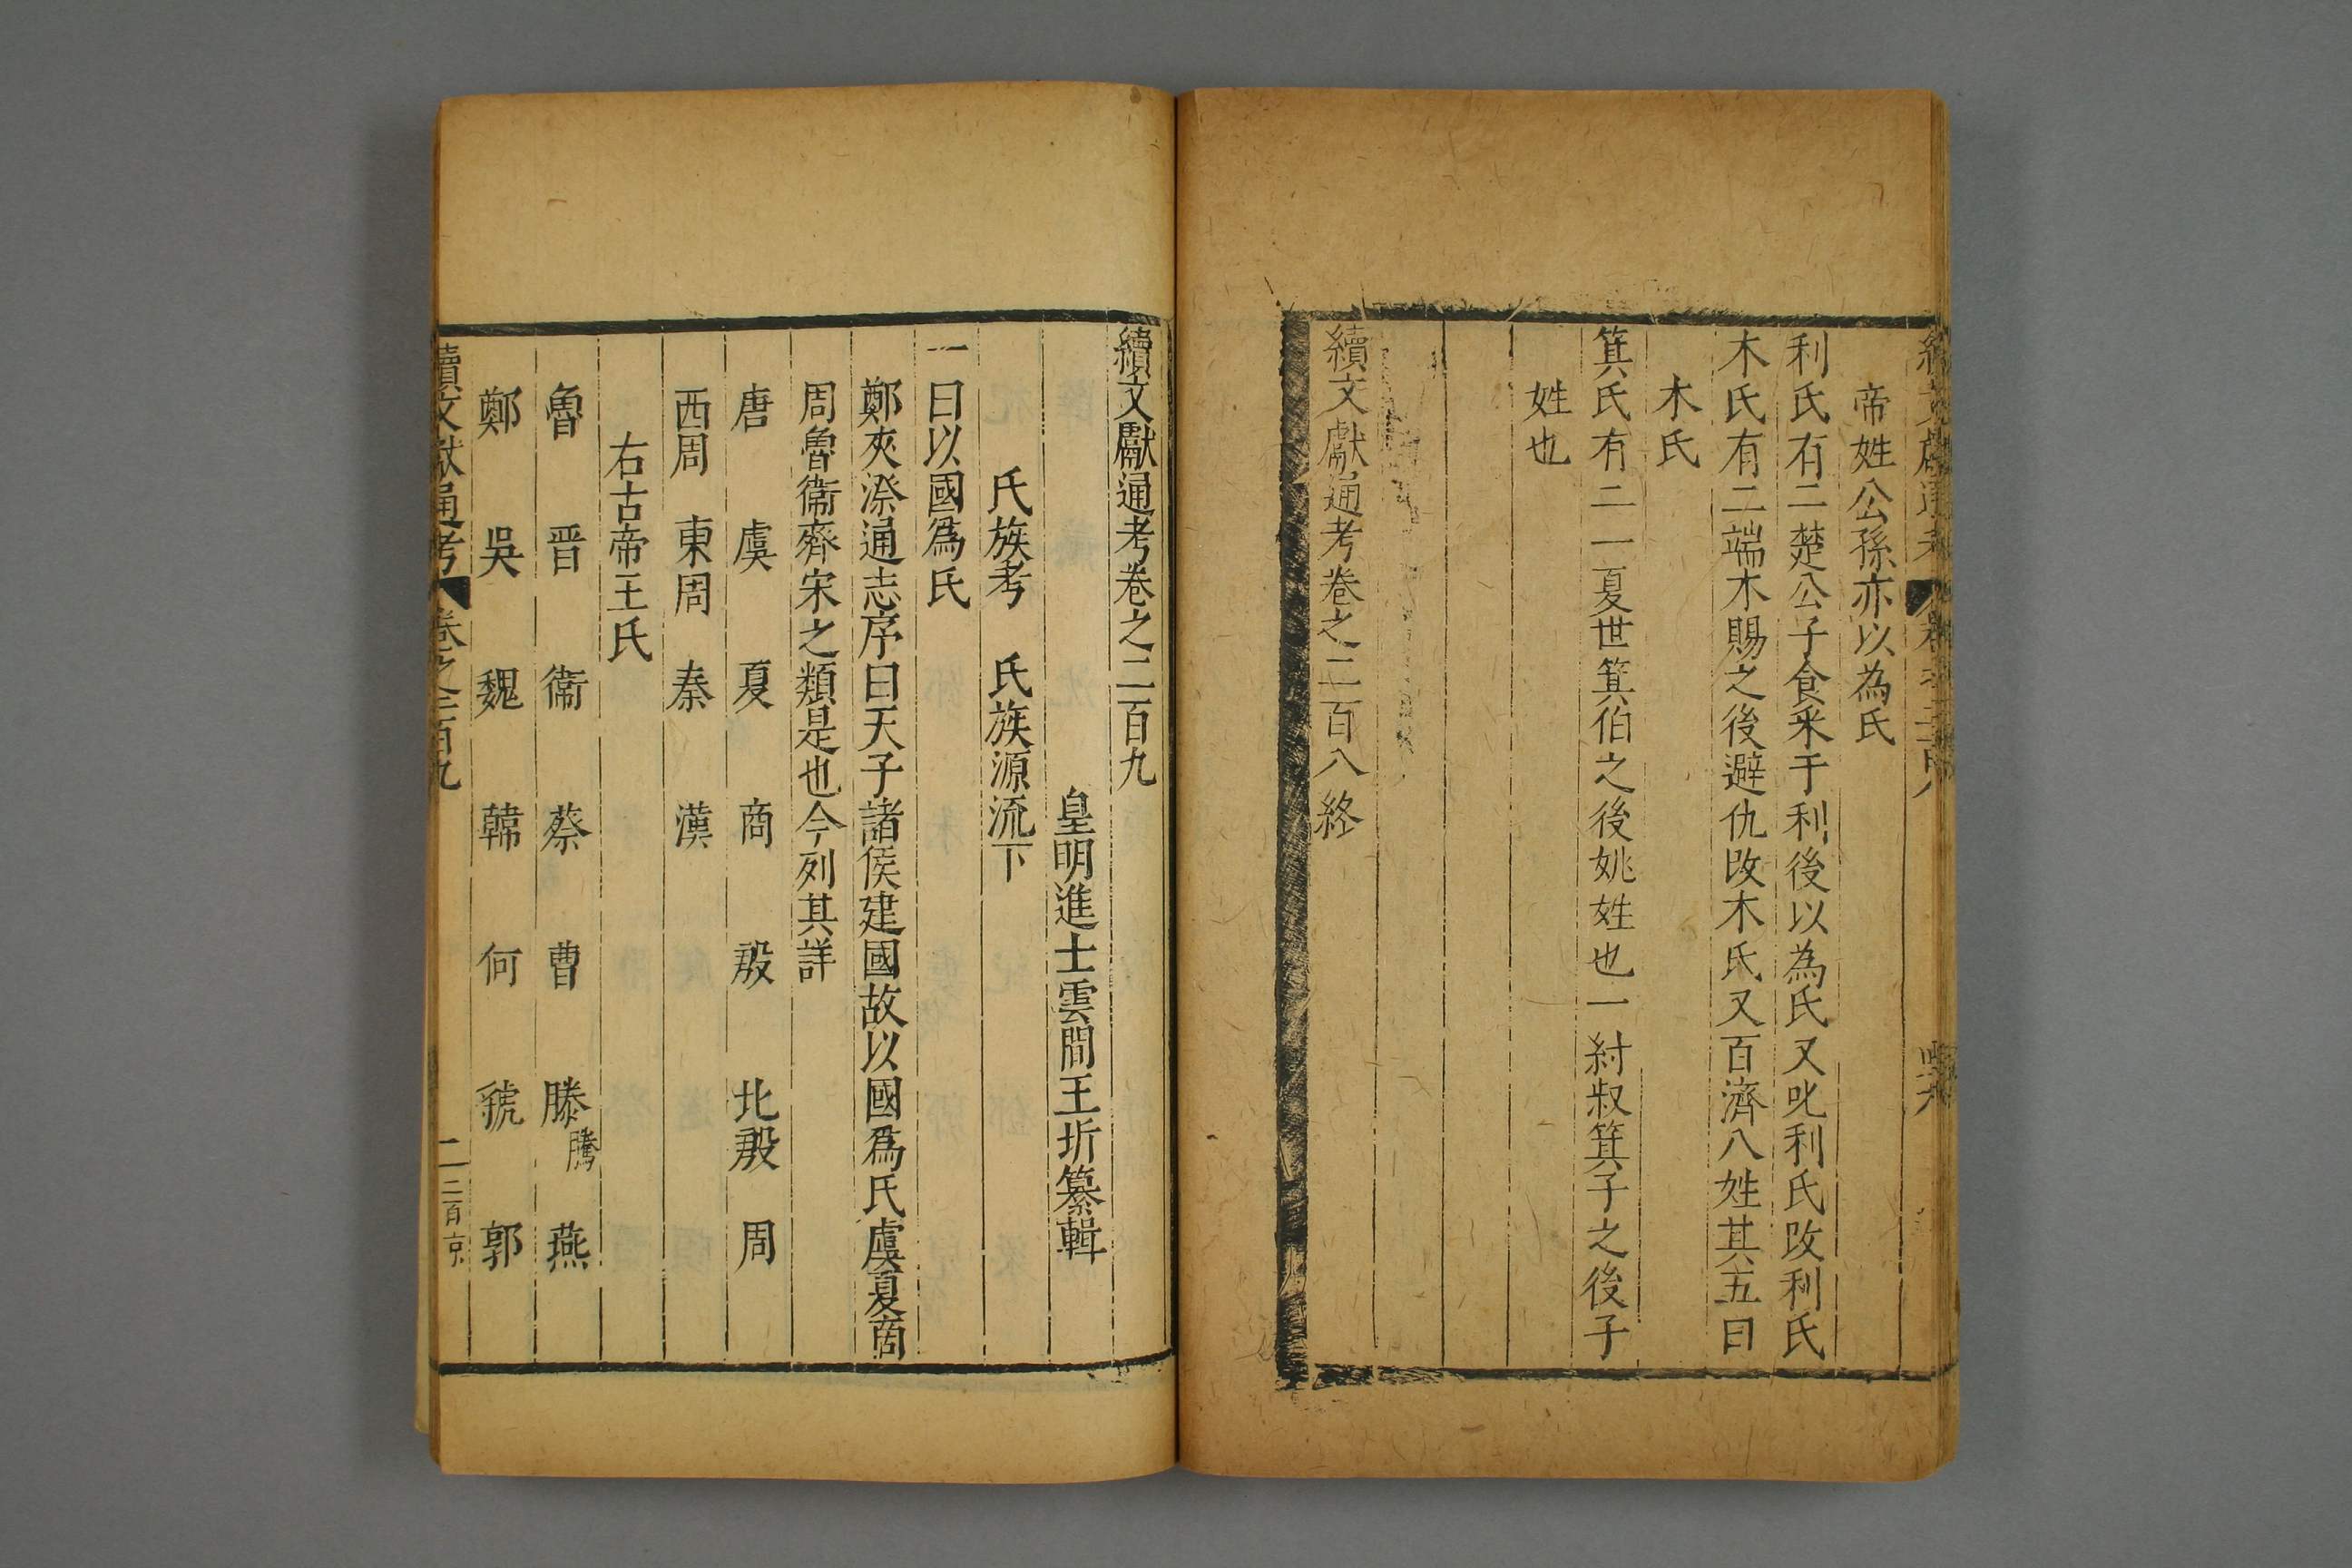 帝姓公孫亦以為氏
利氏有二楚公子食釆于利後以為氏又叱利氏改利氏
木氏有二端木賜之後避仇改木氏又百濟八姓其五曰
木氏
箕氏有二一夏世箕伯之後姚姓也一紂叔箕子之後子
姓也
續文獻通考卷之二百八終
續文獻通考卷之二百九
皇明進士雲間王圻纂輯
氏族考 氏族源流下
一曰以國爲氏
鄭夾漈通志序曰天子諸侯建國故以國爲氏虞夏商
周魯衞齊宋之類是也今列其詳
唐 虞 夏 商 殷 北殷 周
西周 東周 秦 漢
右古帝王氏
魯 晋 衞 蔡 曹 滕騰 燕
鄭 吳 魏 韓 何 虢 郭
續文獻通考 卷之二百九